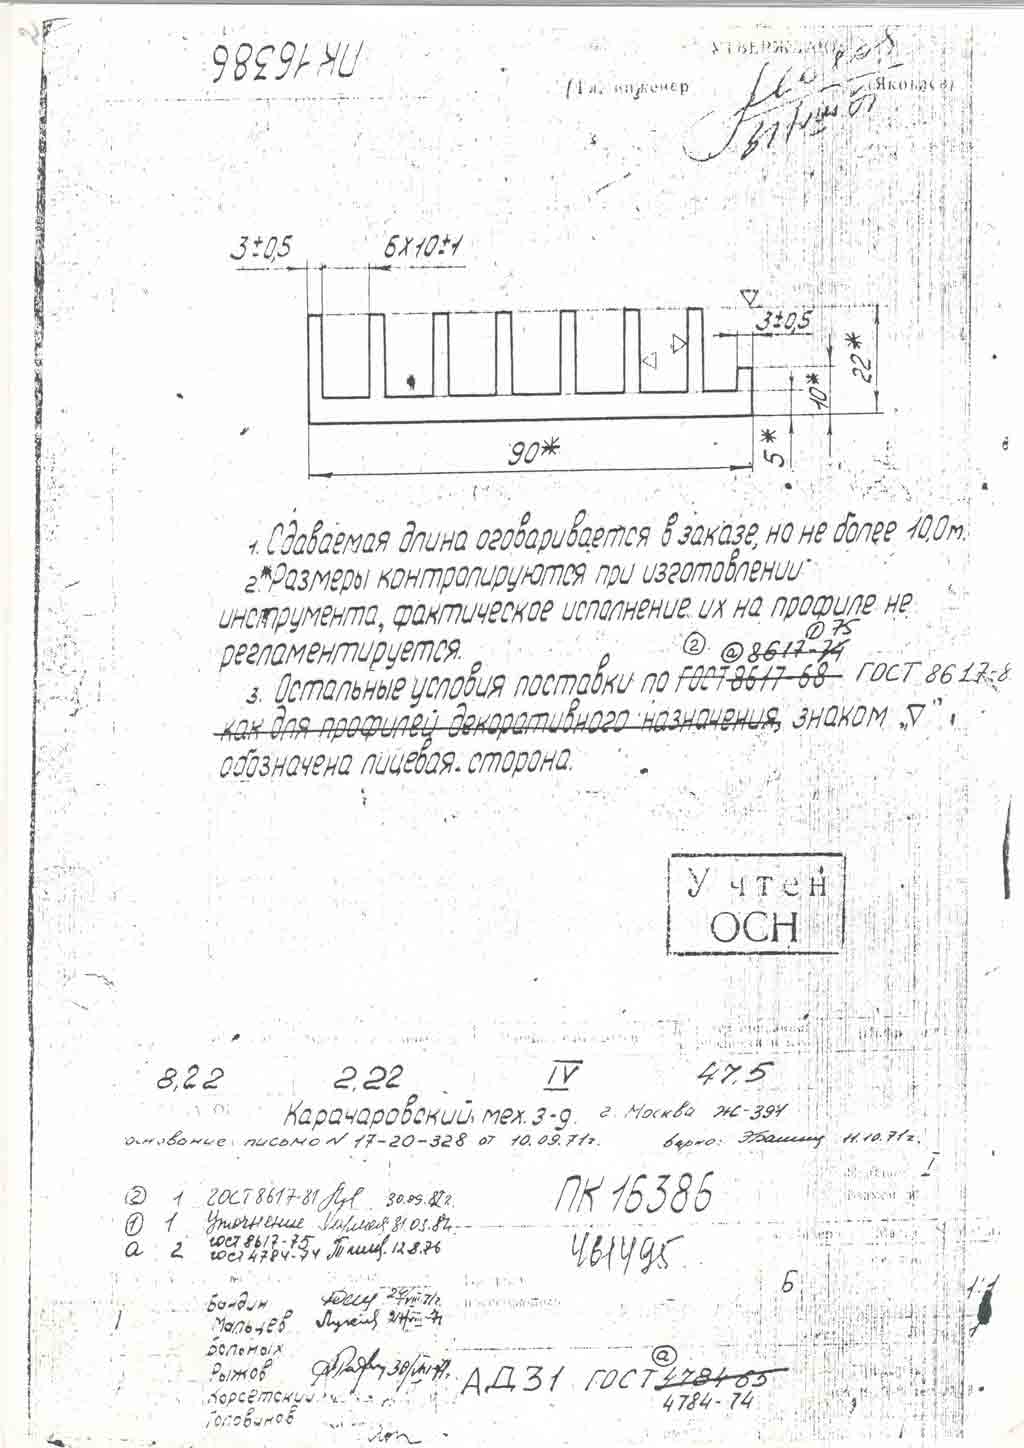 ПК 16386
УТВЕРЖДАЮ
Гл. инженер (Яковлев)
3±0,5
6×10±1
3±0,5
22*
10*
5*
90*
1. Сдаваемая длина оговаривается в заказе, но не более 10,0м.
2.*Размеры контролируются при изготовлении
инструмента, фактическое исполнение их на профиле не
регламентируется.
① 75
② ⓐ 8617-74
3. Остальные условия поставки по ГОСТ 8617-68 ГОСТ 8617-8
как для профилей декоративного назначения, знаком „▽”
обозначена лицевая сторона.
Учтен
ОСН
8,22 2,22 IV 47,5
Карачаровский мех. з-д. г. Москва Ж-394
основание: письмо N 17-20-328 от 10.09.71г. верно: 11.10.71г.
I
② 1 ГОСТ 8617-81 30.09.82г.
① 1 Уточнение 31.03.82.
а 2 ГОСТ 8617-75
ГОСТ 4784-74 12.8.76
ПК 16386
461495
Б 1:1
Бандин
Мальцев
Больных
Рыжов
Корсетский
Головинов
ⓐ
АД31 ГОСТ 4784-65
4784-74